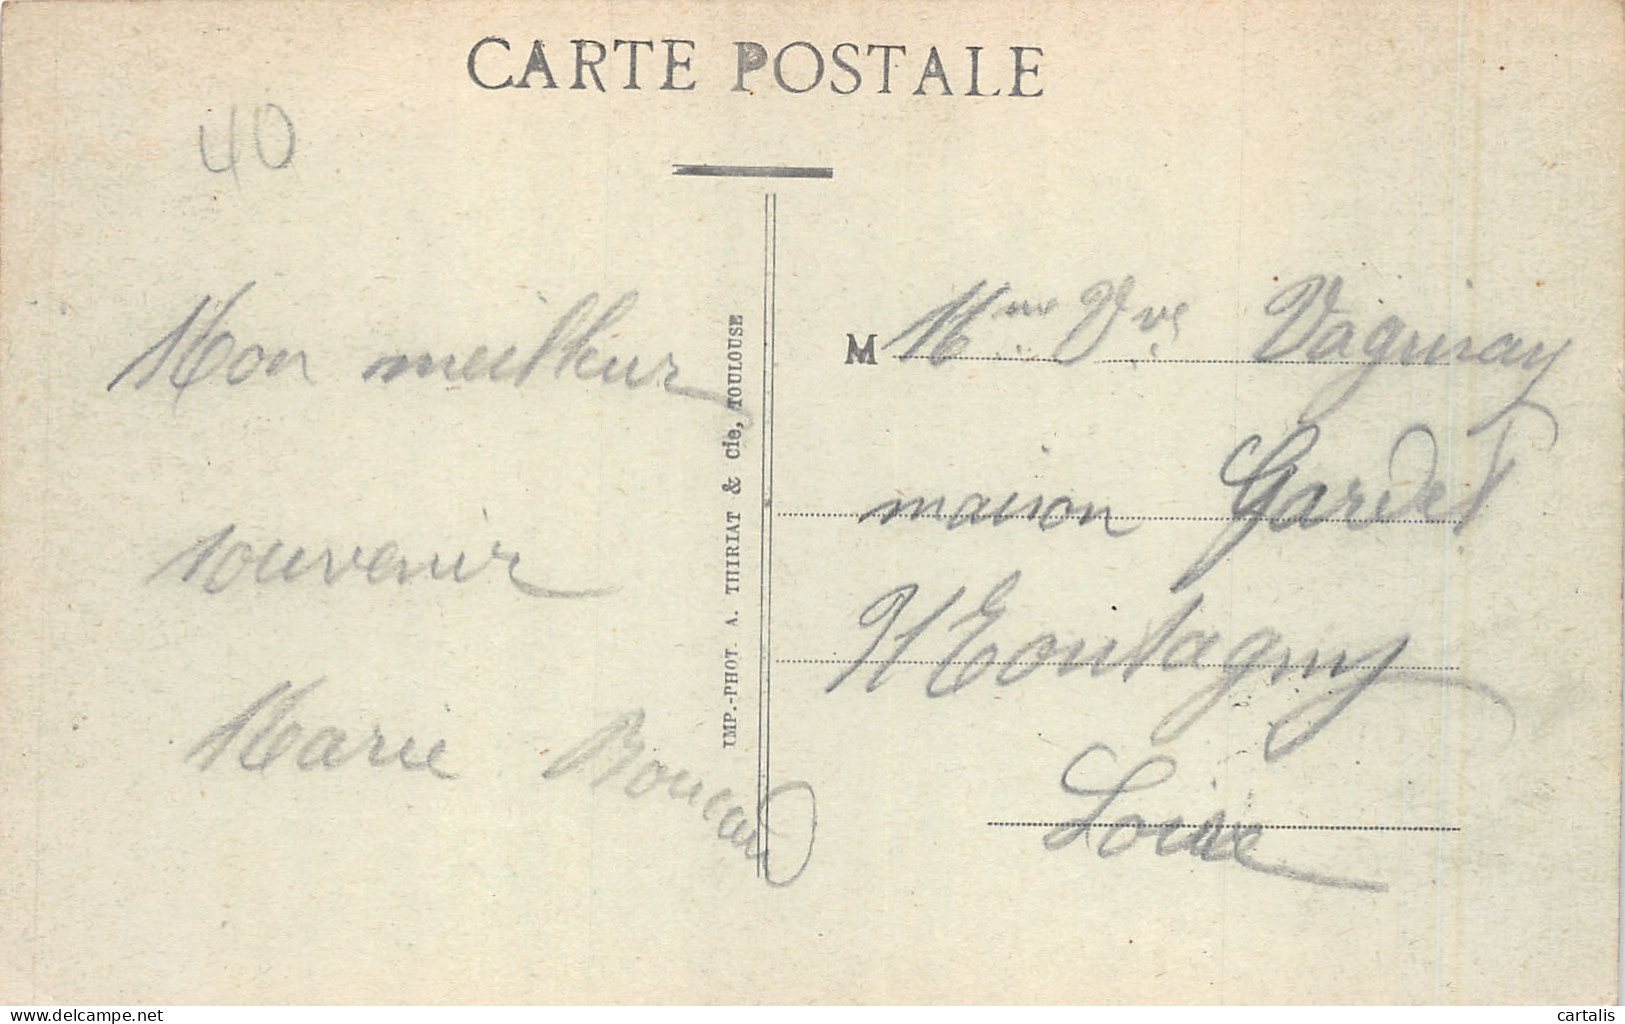 CARTE POSTALE
40
Mon meilleur
souvenir
Marie
IMP.-PHOT. A. THIRIAT & Cie, TOULOUSE
M Mme Vve Vaginay
maison Gardet
Montagny
Loire
delcampe.net
cartalis